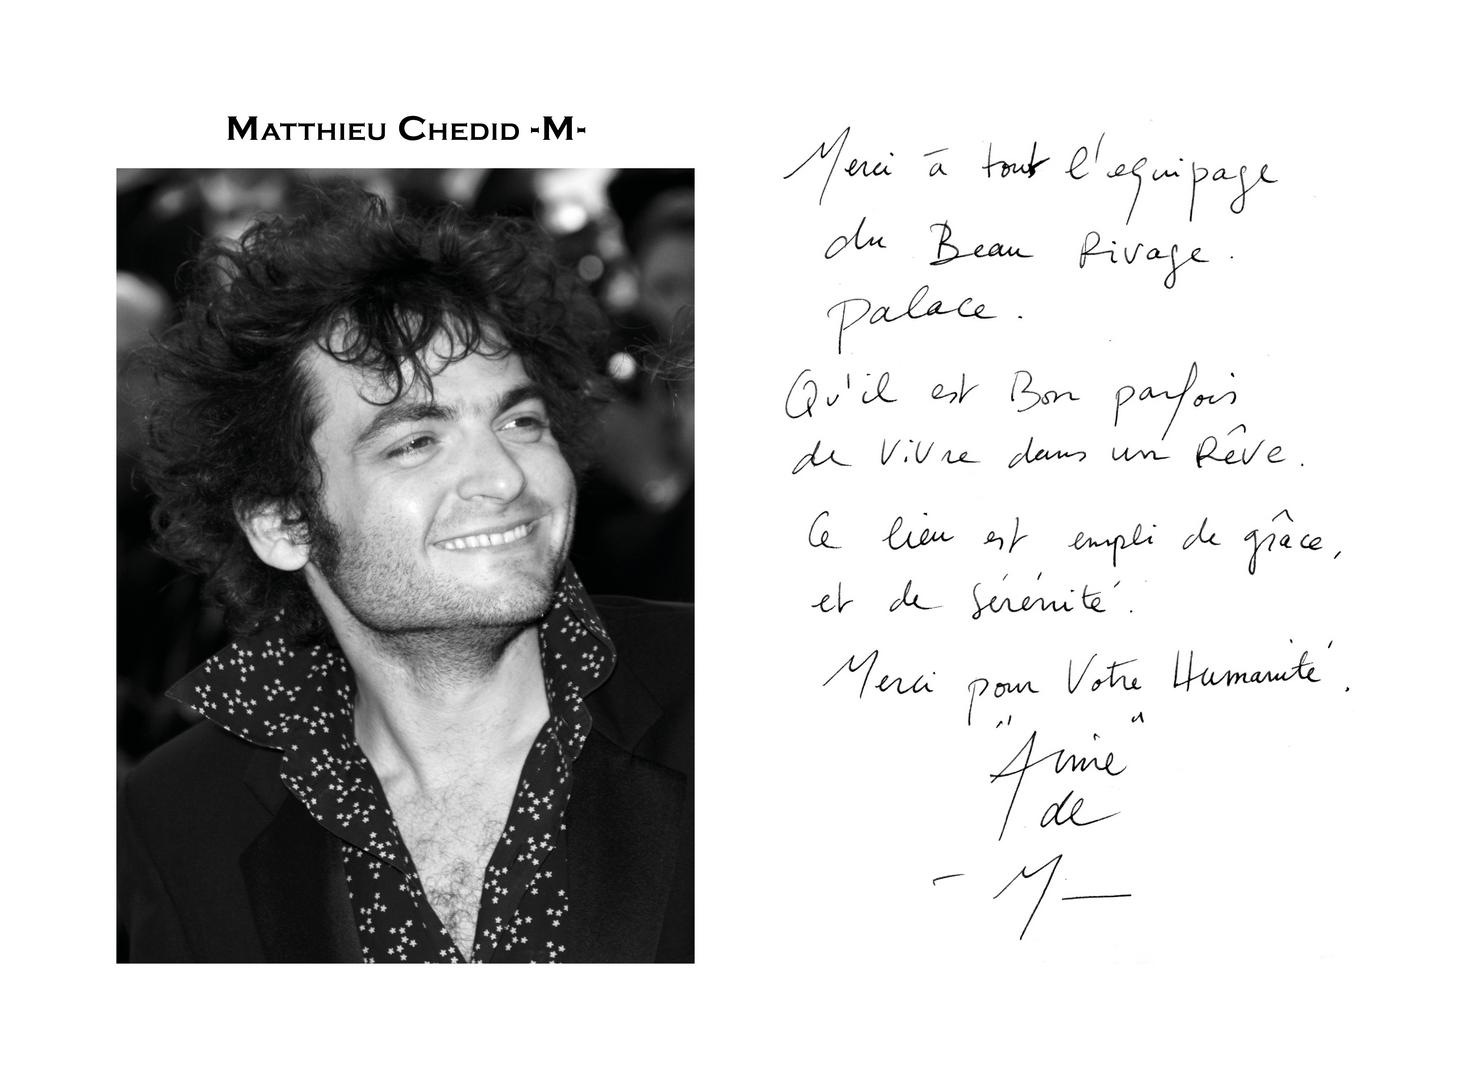 Matthieu Chedid -M-
Merci à tout l'equipage
du Beau Rivage.
palace.
Qu'il est Bon parfois
de vivre dans un Rêve.
Ce lieu est empli de grâce,
et de Sérénité.
Merci pour Votre Humanité.
"Aimé"
de
- M -